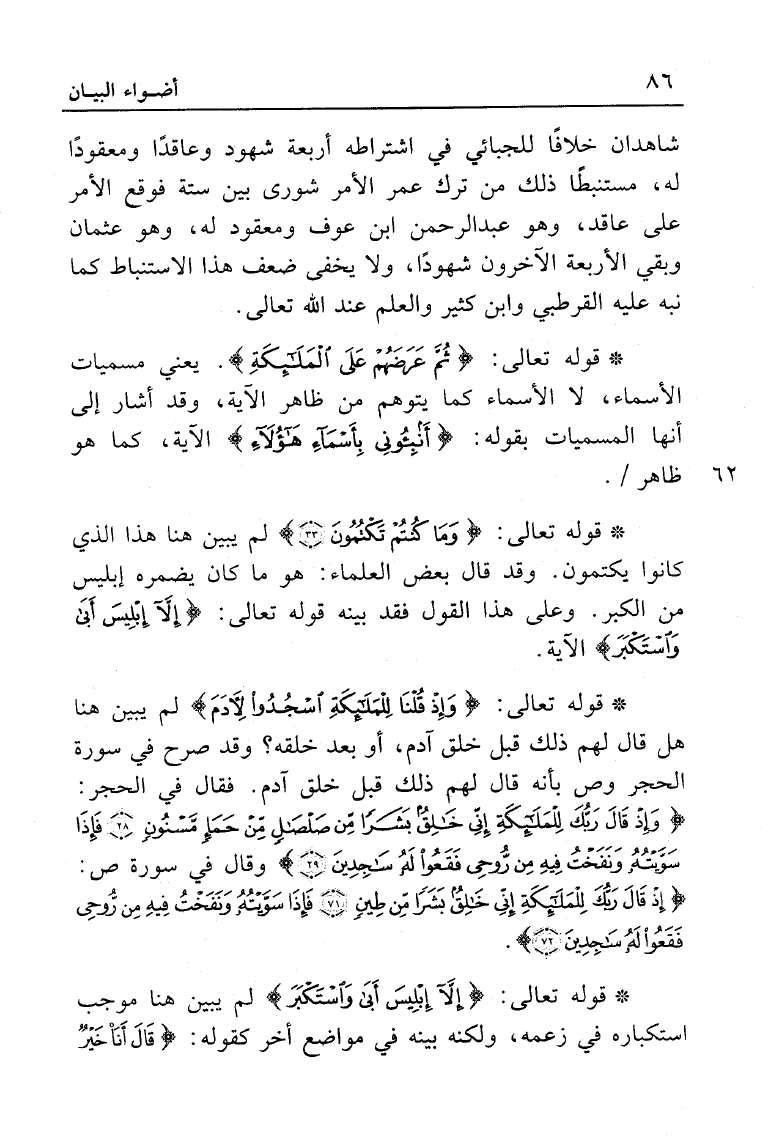 ٨٦ أضـواء البيـان
شاهدان خلافًا للجبائي في اشتراطه أربعة شهود وعاقدًا ومعقودًا
له، مستنبطًا ذلك من ترك عمر الأمر شورى بين ستة فوقع الأمر
على عاقد، وهو عبدالرحمن ابن عوف ومعقود له، وهو عثمان
وبقي الأربعة الآخرون شهودًا، ولا يخفى ضعف هذا الاستنباط كما
نبه عليه القرطبي وابن كثير والعلم عند الله تعالى.
* قوله تعالى: ﴿ ثُمَّ عَرَضَهُمْ عَلَى ٱلْمَلَـٰٓئِكَةِ ﴾. يعني مسميات
الأسماء، لا الأسماء كما يتوهم من ظاهر الآية، وقد أشار إلى
أنها المسميات بقوله: ﴿ أَنۢبِـُٔونِى بِأَسْمَآءِ هَـٰٓؤُلَآءِ ﴾ الآية، كما هو
ظاهر / . ٦٢
* قوله تعالى: ﴿ وَمَا كُنتُمْ تَكْتُمُونَ ٣٣ ﴾ لم يبين هنا هذا الذي
كانوا يكتمون. وقد قال بعض العلماء: هو ما كان يضمره إبليس
من الكبر. وعلى هذا القول فقد بينه قوله تعالى: ﴿ إِلَّآ إِبْلِيسَ أَبَىٰ
وَٱسْتَكْبَرَ ﴾ الآية.
* قوله تعالى: ﴿ وَإِذْ قُلْنَا لِلْمَلَـٰٓئِكَةِ ٱسْجُدُوا۟ لِـَٔادَمَ ﴾ لم يبين هنا
هل قال لهم ذلك قبل خلق آدم، أو بعد خلقه؟ وقد صرح في سورة
الحجر وص بأنه قال لهم ذلك قبل خلق آدم. فقال في الحجر:
﴿ وَإِذْ قَالَ رَبُّكَ لِلْمَلَـٰٓئِكَةِ إِنِّى خَـٰلِقٌۢ بَشَرًا مِّن صَلْصَـٰلٍ مِّنْ حَمَإٍ مَّسْنُونٍ ٢٨ فَإِذَا
سَوَّيْتُهُۥ وَنَفَخْتُ فِيهِ مِن رُّوحِى فَقَعُوا۟ لَهُۥ سَـٰجِدِينَ ٢٩ ﴾ وقال في سورة ص:
﴿ إِذْ قَالَ رَبُّكَ لِلْمَلَـٰٓئِكَةِ إِنِّى خَـٰلِقٌۢ بَشَرًا مِّن طِينٍ ٧١ فَإِذَا سَوَّيْتُهُۥ وَنَفَخْتُ فِيهِ مِن رُّوحِى
فَقَعُوا۟ لَهُۥ سَـٰجِدِينَ ٧٢ ﴾.
* قوله تعالى: ﴿ إِلَّآ إِبْلِيسَ أَبَىٰ وَٱسْتَكْبَرَ ﴾ لم يبين هنا موجب
استكباره في زعمه، ولكنه بينه في مواضع أخر كقوله: ﴿ قَالَ أَنَا۠ خَيْرٌ